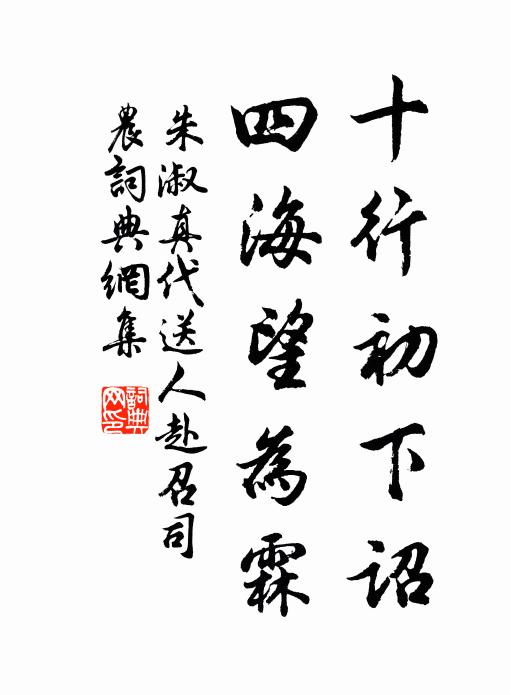 十行初下詔
四海望為霖
朱淑真代送人赴召司
農詞典網集
詞典
网印